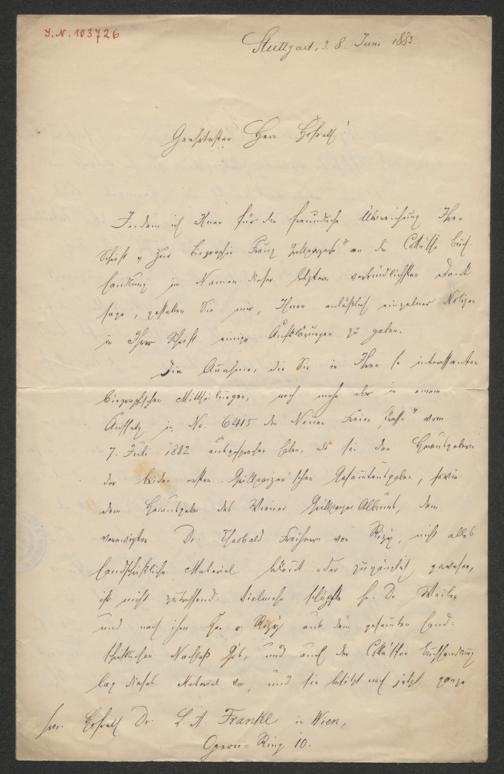 J.N. 103726
Stuttgart, d. 8. Juni 1883
Geehrtester Herr Hofrath!
Indem ich Ihnen für die freundliche Überreichung Ihrer
Schrift „Zur Biographie Franz Grillparzers" an die Cotta'sche Buch-
handlung im Namen dieser letztern verbindlichsten Dank
sage, gestatten Sie mir, Ihnen anläßlich einzelner Notizen
in Ihrer Schrift einige Aufklärungen zu geben.
Die Annahme, die Sie in Ihren so interessanten
biographischen Mittheilungen, noch mehr aber in einem
Aufsatz in No. 6415 der Neuen Freien Presse" vom
7. Juli 1882 ausgesprochen haben, als sei den Herausgebern
der beiden ersten Grillparzer'schen Gesammtausgaben, sowie
dem Herausgeber des Wiener Grillparzer-Albums, dem
verewigten Dr. Theobald Freiherrn von Rizy, nicht alles
handschriftliche Material bekannt oder zugänglich gewesen,
ist nicht zutreffend. Vielmehr schöpfte Hr. Dr. Weilen
und nach ihm Hr. v. Rizy aus dem gesamten hand-
schriftlichen Nachlaß Gr's, und auch der Cotta'schen Buchhandlung
lag dieses Material vor, und sie besitzt noch jetzt ganze
Hrn. Hofrath Dr. L. A. Frankl in Wien,
Opern-Ring 10.